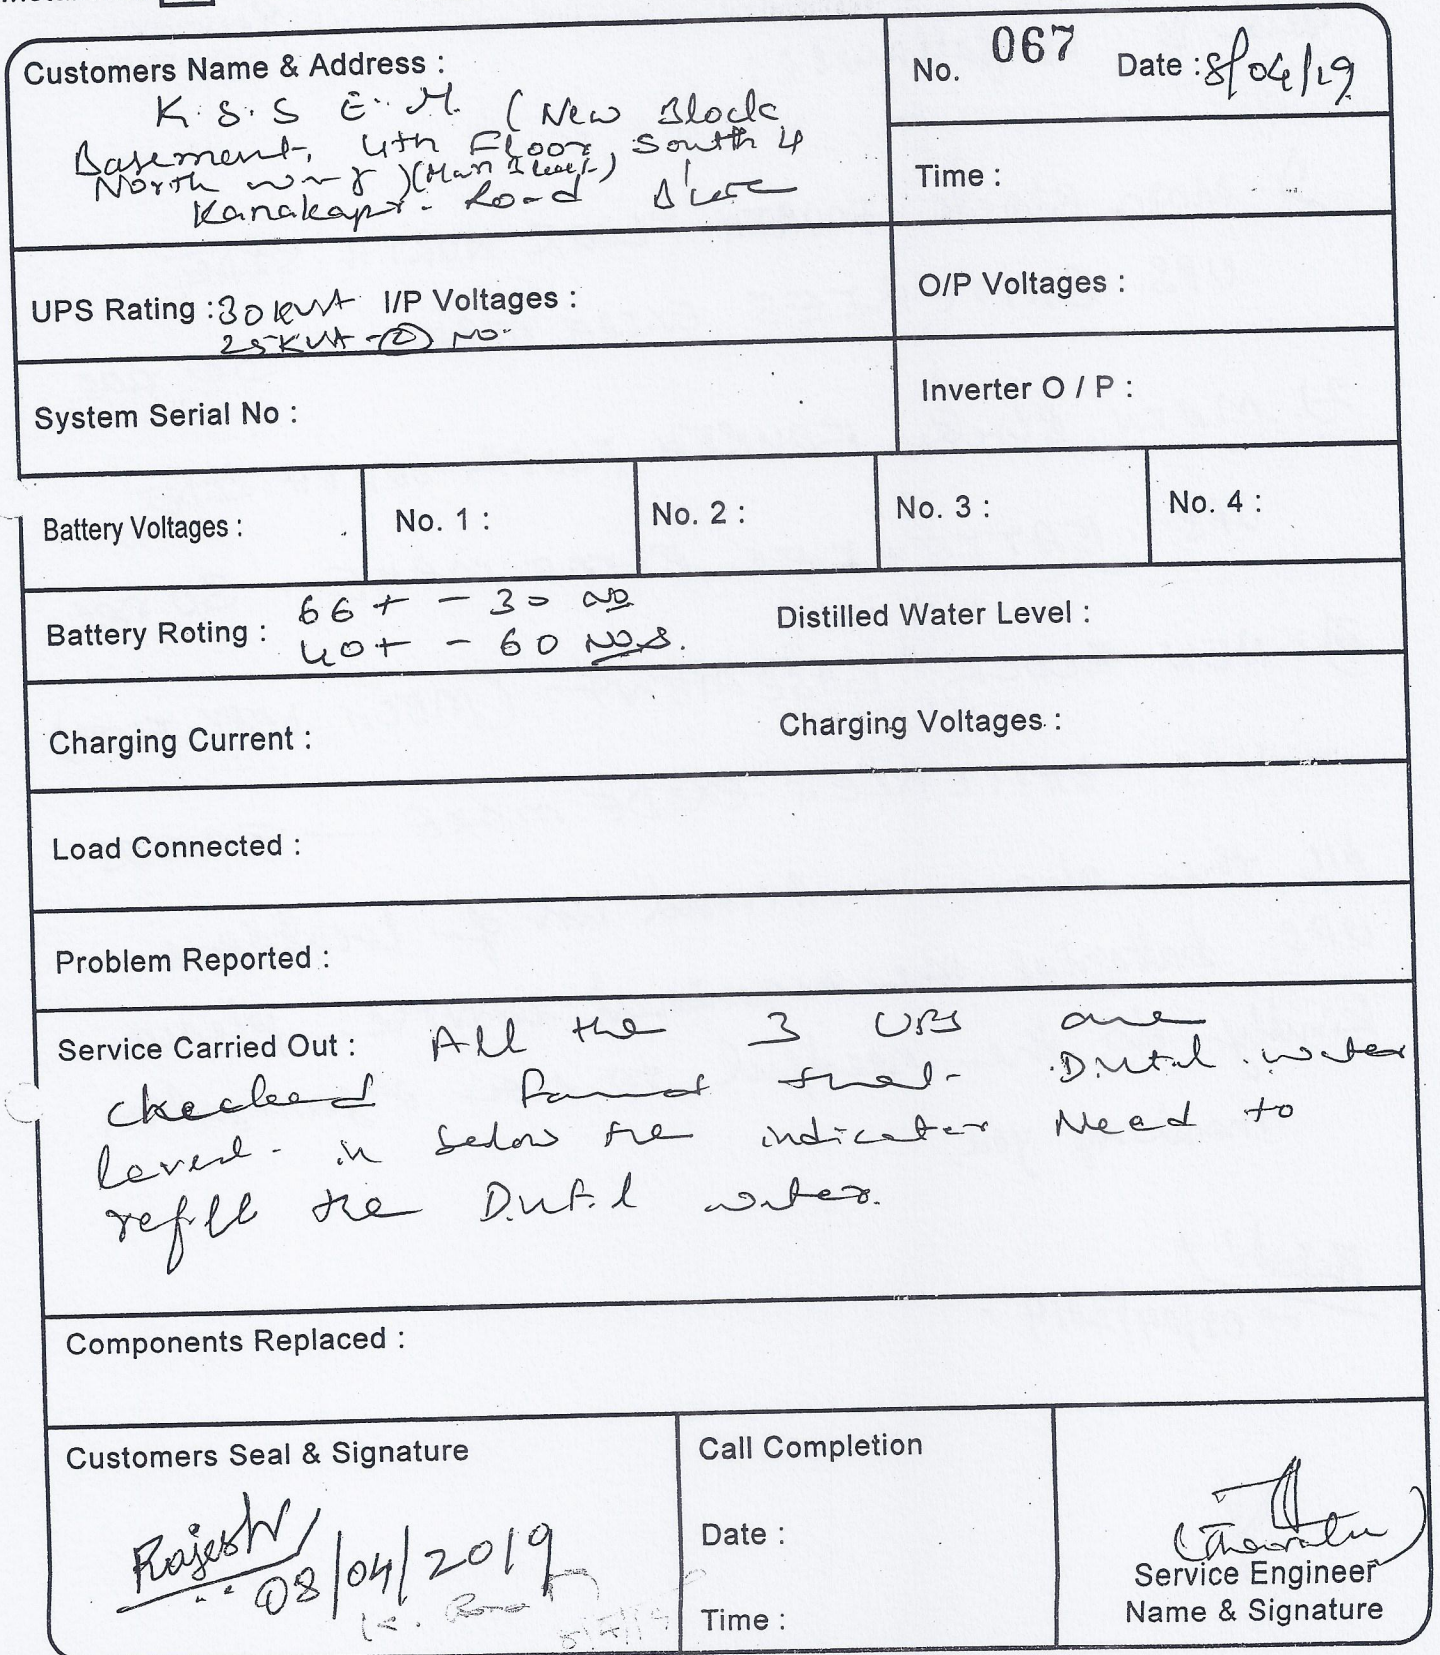 Customers Name & Address :
K.S.S E.M. (New Block
Basement, 4th Floor, South &
North wing) (Main Block)
Kanakapr. Road B'lore
No. 067 Date : 8/04/19
Time :
UPS Rating : 30 KVA I/P Voltages :
25 KVA - 2 No.
O/P Voltages :
System Serial No :
Inverter O / P :
Battery Voltages : No. 1 : No. 2 : No. 3 : No. 4 :
Battery Roting : 66+ - 30 No
40+ - 60 Nos.
Distilled Water Level :
Charging Current : Charging Voltages :
Load Connected :
Problem Reported :
Service Carried Out : All the 3 UPS are
checked found that water
level in below the indicator Need to
refill the water.
Components Replaced :
Customers Seal & Signature
Rajesh
08/04/2019
Call Completion
Date :
Time :
Service Engineer
Name & Signature